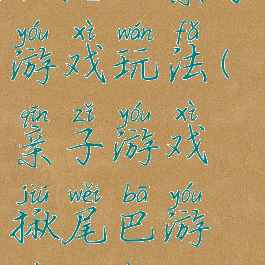 yóu xì wán fǎ
游戏玩法(
qīn zǐ yóu xì
亲子游戏
jiū wěi bā yóu
揪尾巴游